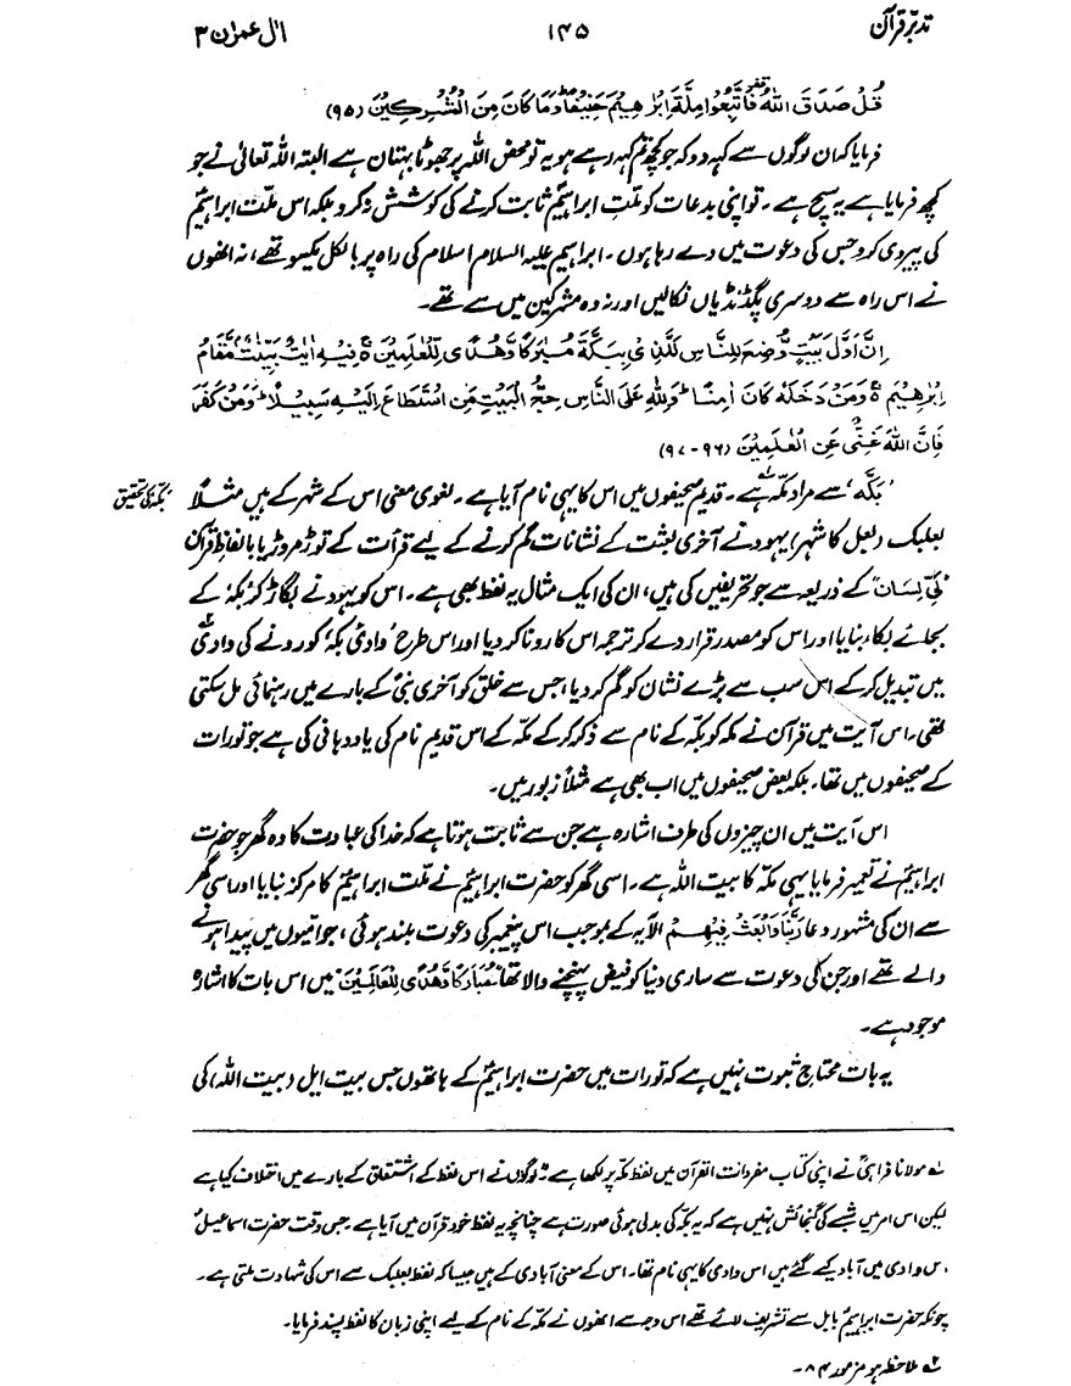 تدبّرِ قرآن ۱۴۵ اٰل عمرٰن ۳
قُلْ صَدَقَ اللّٰهُ فَاتَّبِعُوْا مِلَّةَ اِبْرٰهِيْمَ حَنِيْفًا وَمَا كَانَ مِنَ الْمُشْرِكِيْنَ (۹۵)
فرمایا کہ ان لوگوں سے کہہ دو کہ جو کچھ تم کہہ رہے ہو یہ تو محض اللہ پر جھوٹا بہتان ہے البتہ اللہ تعالیٰ نے جو
کچھ فرمایا ہے یہ سچ ہے۔ تو اپنی بدعات کو ملّتِ ابراہیمؑ ثابت کرنے کی کوشش نہ کرو بلکہ اس ملّت ابراہیمؑ
کی پیروی کرو جس کی دعوت میں دے رہا ہوں۔ ابراہیم علیہ السلام اسلام کی راہ پر بالکل یکسو تھے، نہ انھوں
نے اس راہ سے دوسری پگڈنڈیاں نکالیں اور نہ وہ مشرکین میں سے تھے۔
اِنَّ اَوَّلَ بَيْتٍ وُّضِعَ لِلنَّاسِ لَلَّذِىْ بِبَكَّةَ مُبٰرَكًا وَّهُدًى لِّلْعٰلَمِيْنَ ۃ فِيْهِ اٰيٰتٌۢ بَيِّنٰتٌ مَّقَامُ
اِبْرٰهِيْمَ ۃ وَمَنْ دَخَلَهٗ كَانَ اٰمِنًا ؕ وَلِلّٰهِ عَلَى النَّاسِ حِجُّ الْبَيْتِ مَنِ اسْتَطَاعَ اِلَيْهِ سَبِيْلًا ؕ وَمَنْ كَفَرَ
فَاِنَّ اللّٰهَ غَنِىٌّ عَنِ الْعٰلَمِيْنَ (۹۶-۹۷)
’بَکَّہ‘ سے مراد مکّہ ہے۔ قدیم صحیفوں میں اس کا یہی نام آیا ہے۔ لغوی معنی اس کے شہر کے ہیں مثلاً
’بکّہ‘ کی تحقیق
بعلبک (بعل کا شہر) یہود نے آخری بعثت کے نشانات گم کرنے کے لیے قرأت کے توڑ مروڑ یا بالفاظِ قرآن
”لَیِّ لِسَان“ کے ذریعہ سے جو تحریفیں کی ہیں، ان کی ایک مثال یہ لفظ بھی ہے۔ اس کو یہود نے بگاڑ کر ’بکہ‘ کے
بجائے بکاء بنایا اور اس کو مصدر قرار دے کر ترجمہ اس کا رونا کر دیا اور اس طرح ’وادیٔ بکہ‘ کو رونے کی وادیؔ
میں تبدیل کر کے اس سب سے بڑے نشان کو گم کر دیا، جس سے خلق کو آخری نبیؐ کے بارے میں رہنمائی مل سکتی
تھی۔ اس آیت میں قرآن نے مکہ کو بکّہ کے نام سے ذکر کر کے مکّہ کے اس قدیم نام کی یاددہانی کی ہے جو تورات
کے صحیفوں میں تھا۔ بلکہ بعض صحیفوں میں اب بھی ہے مثلاً زبور میں۔
اس آیت میں ان چیزوں کی طرف اشارہ ہے جن سے ثابت ہوتا ہے کہ خدا کی عبادت کا وہ گھر جو حضرت
ابراہیمؑ نے تعمیر فرمایا یہی مکّہ کا بیت اللہ ہے۔ اسی گھر کو حضرت ابراہیمؑ نے ملّت ابراہیمؑ کا مرکز بنایا اور اسی گھر
سے ان کی مشہور دعا رَبَّنَا وَابْعَثْ فِيْهِمْ الآیہ کے بموجب اس پیغمبر کی دعوت بلند ہوئی، جو امّیوں میں پیدا ہونے
والے تھے اور جن کی دعوت سے ساری دنیا کو فیض پہنچنے والا تھا ’مُبَارَكًا وَّهُدًى لِّلْعَالَمِيْنَ‘ میں اس بات کا اشارہ
موجود ہے۔
یہ بات محتاجِ ثبوت نہیں ہے کہ تورات میں حضرت ابراہیمؑ کے ہاتھوں جس بیت ایل (بیت اللہ) کی
لہ مولانا فراہیؒ نے اپنی کتاب مفردات القرآن میں لفظ مکّہ پر لکھا ہے: ”لوگوں نے اس لفظ کے اشتقاق کے بارے میں اختلاف کیا ہے
لیکن اس امر میں شبہے کی گنجائش نہیں ہے کہ یہ بکّہ کی بدلی ہوئی صورت ہے چنانچہ یہ لفظ خود قرآن میں آیا ہے۔ جس وقت حضرت اسماعیلؑ
اس وادی میں آباد کیے گئے ہیں اس وادی کا یہی نام تھا۔ اس کے معنی آبادی کے ہیں جیسا کہ لفظ بعلبک سے اس کی شہادت ملتی ہے۔
چونکہ حضرت ابراہیمؑ بابل سے تشریف لائے تھے اس وجہ سے انھوں نے مکّہ کے نام کے لیے اپنی زبان کا لفظ پسند فرمایا۔
۲ہ ملاحظہ ہو مزمور ۸۴۔